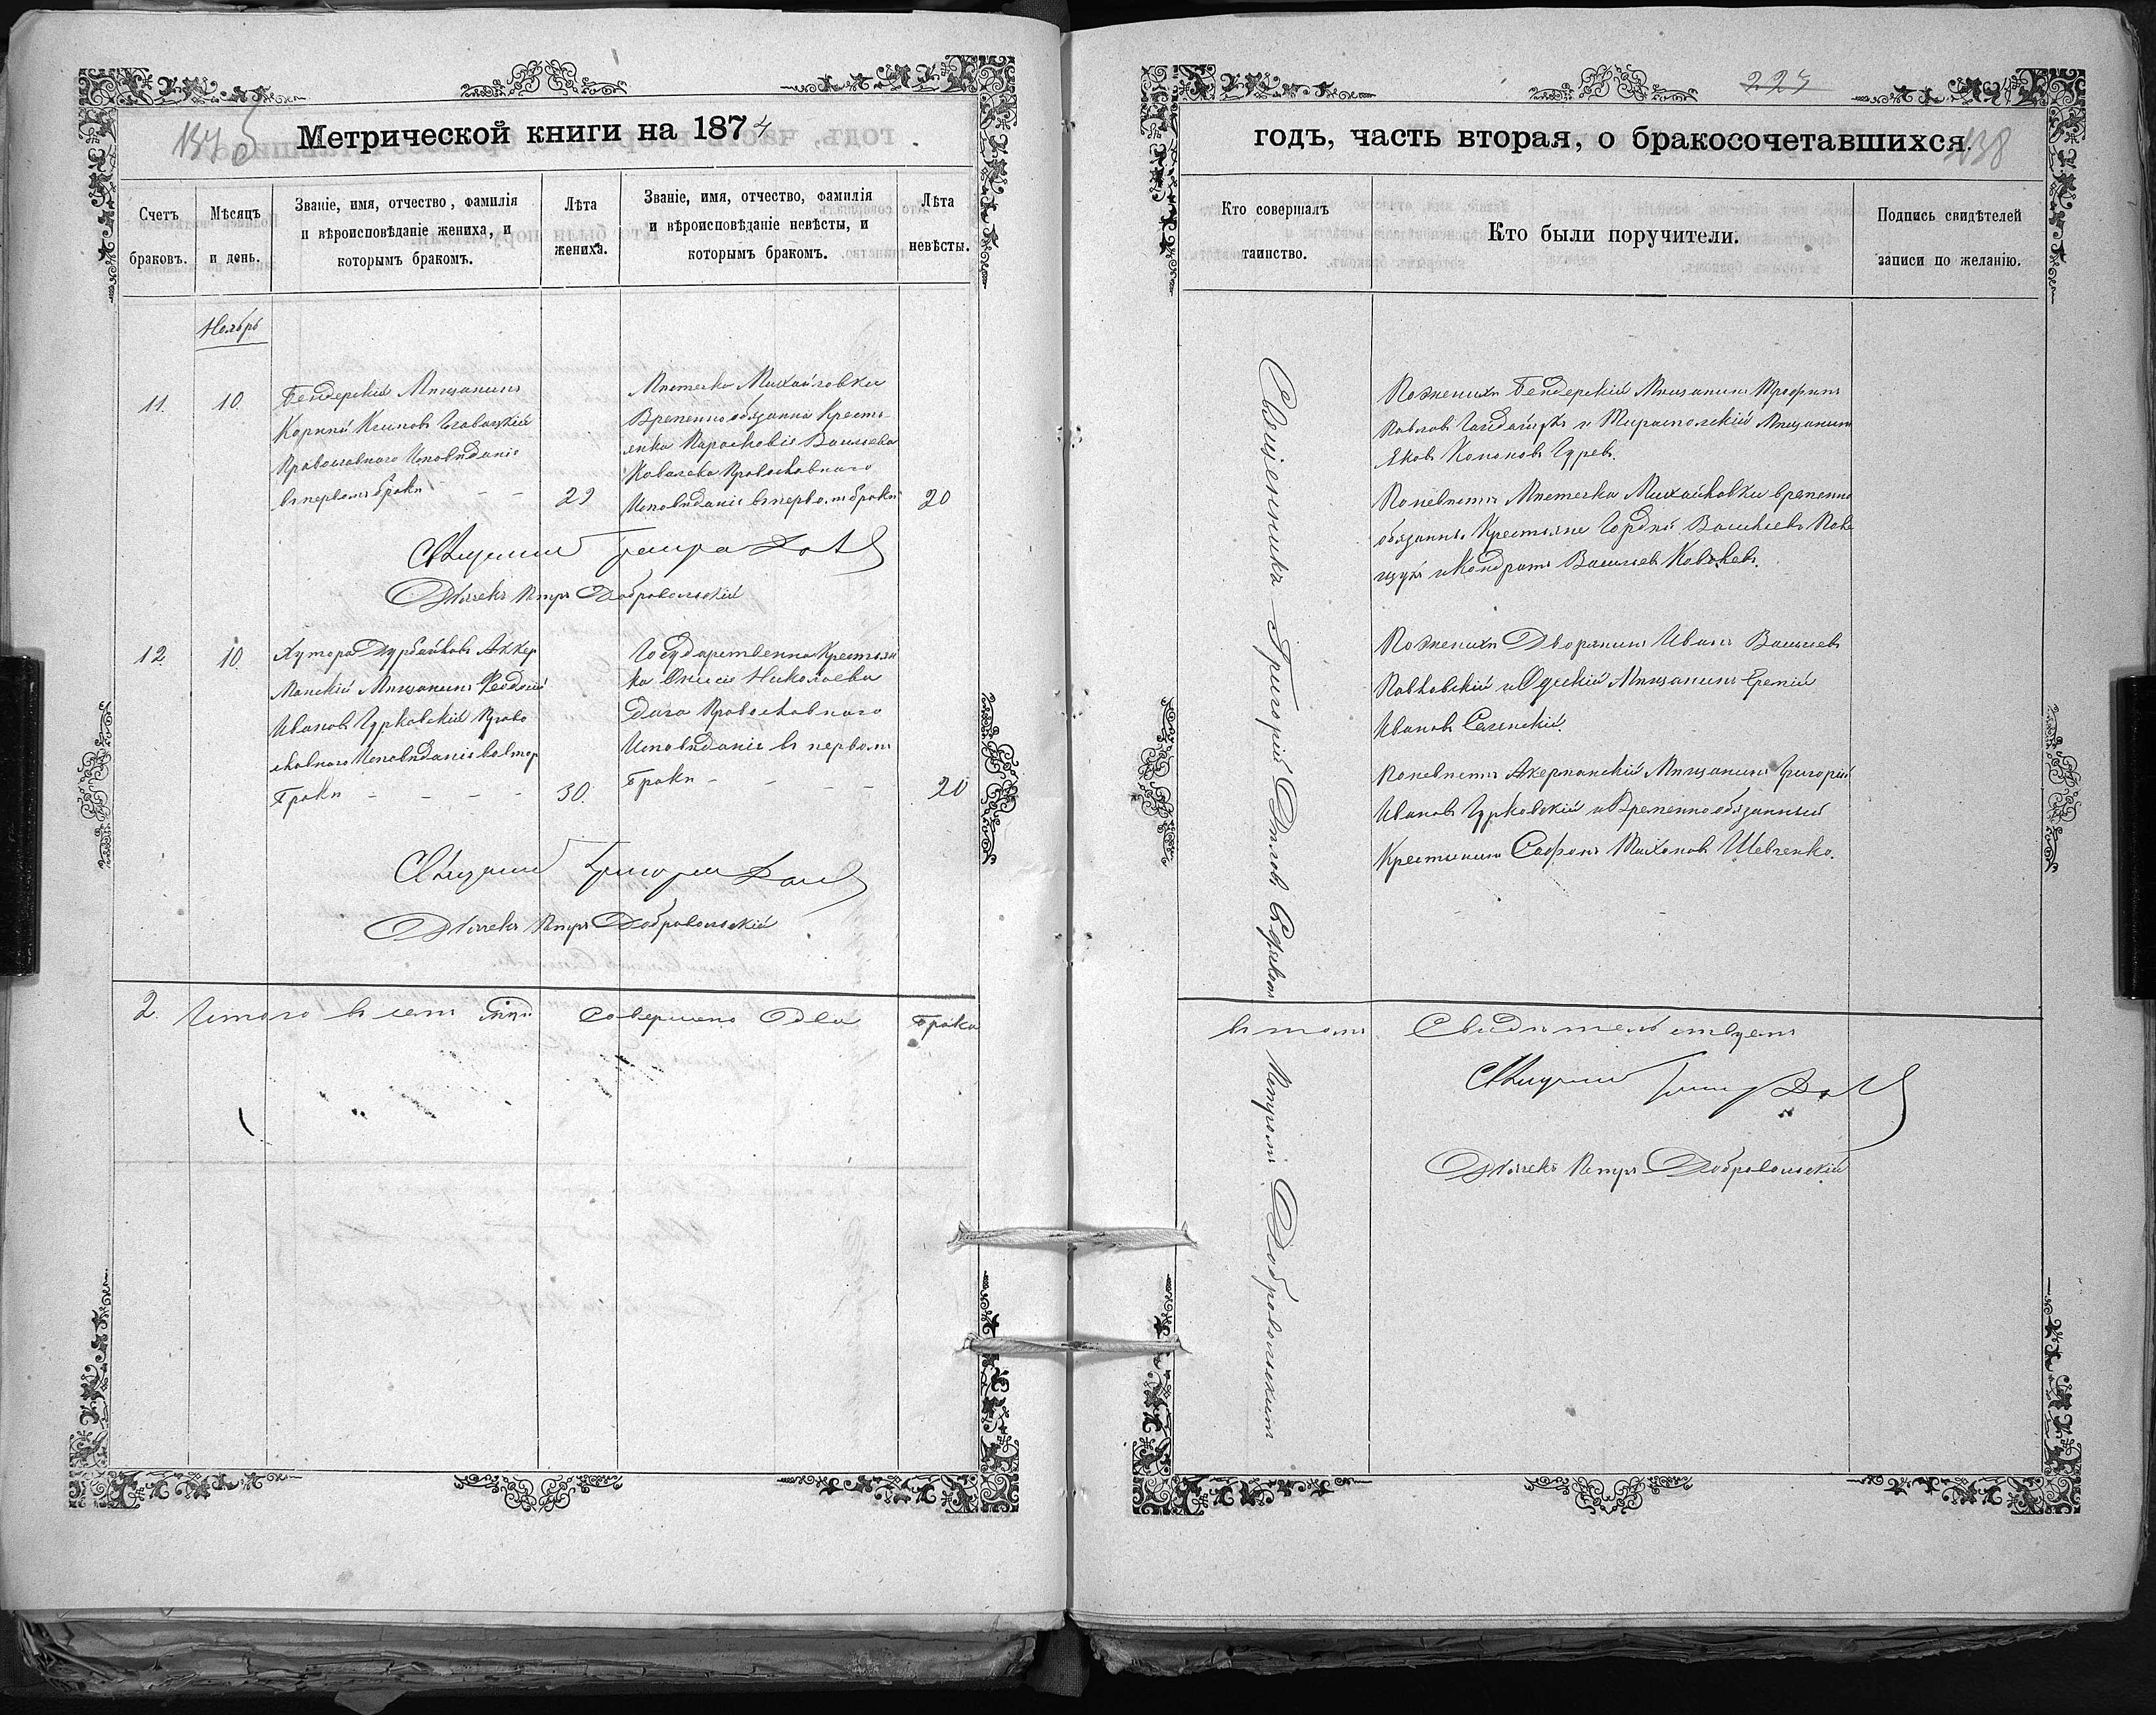 Метрической книги на 1874
Счетъ браковъ.
Мѣсяцъ и день.
Званіе, имя, отчество, фамилія
и вѣроисповѣданіе жениха, и
которымъ бракомъ.
Лѣта жениха.
Званіе, имя, отчество, фамилія
и вѣроисповѣданіе невѣсты, и
которымъ бракомъ.
Лѣта невѣсты.
Ноябрь
11.
10.
Бендерскій Мѣщанинъ
Корнѣй Климовъ
Православнаго Исповѣданія
въ первомъ бракѣ - -
29
Мѣстечка Михайловки
Временнообязанна Кресть-
янка Парасковія Васильева
Ковалева Православнаго
Исповѣданія въ первомъ бракѣ
20
Священникъ
Дьячекъ Петръ Добровольскій
12
10.
Хутора Аккер
Манскій Мѣщанинъ Феодосій
Ивановъ Цурковскій Право
славнаго Исповѣданія вовтор
Бракѣ - - - -
30.
Государственна Крестьян
ка Николаева
Православнаго
Исповѣданія въ первомъ
Бракѣ - - - -
20
Священникъ Григорій
Дьячекъ Петръ Добровольскій
2.
Итого въ семъ совершено Два Брака
годъ, часть вторая, о бракосочетавшихся.
227
438
Кто совершалъ таинство.
Кто были поручители.
Подпись свидѣтелей
записи по желанію.
Священникъ Григорій
Петромъ Добровольскимъ
Поженихѣ Бендерскій Мѣщанинъ Трофимъ
Павловъ и Тираспольскій Мѣщанинъ
Яковъ Кононовъ Гуревъ.
Поневѣстѣ Мѣстечка Михайловки временно
обязанны Крестьяне Гордѣй Васильевъ
и Кондратъ Васильевъ Ковалевъ.
Поженихѣ Дворянинъ Иванъ Васильевъ
Павловскій и Одескій Мѣщанинъ Еремій
Ивановъ
Поневѣстѣ Акерманскій Мѣщанинъ Григорій
Ивановъ Цурковскій и Временнообязанный
Крестьянинъ Сафонъ Тихоновъ Шевченко.
въ томъ Свидѣтельствуемъ
Священникъ
Дьячекъ Петръ Добровольскій